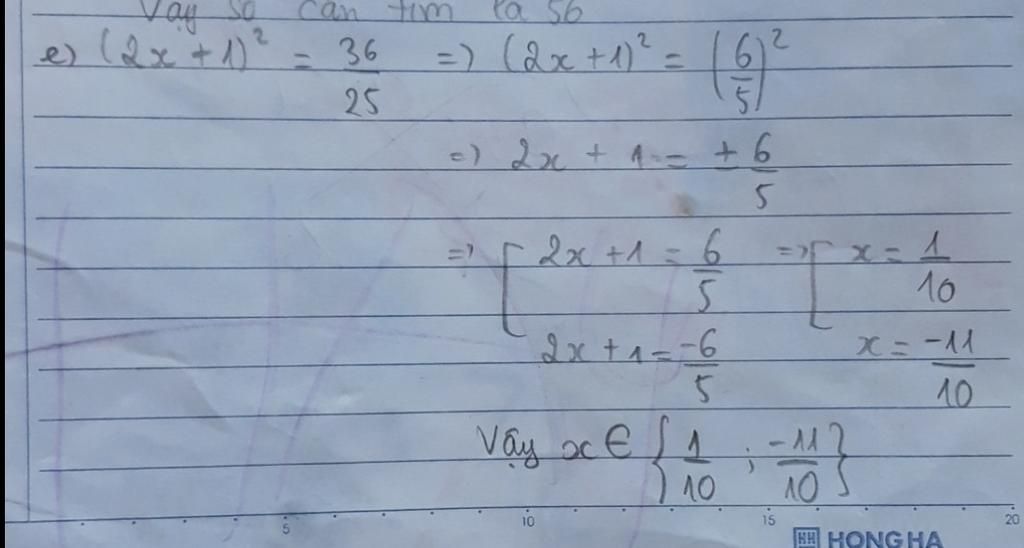 Vậy số cần tìm là 56
e) (2x + 1)² = 36/25 => (2x + 1)² = (6/5)²
=> 2x + 1 = ± 6/5
=> [ 2x + 1 = 6/5 => [ x = 1/10
2x + 1 = -6/5 x = -11/10
Vậy x ∈ {1/10 ; -11/10}
5 10 15 20
HH HONG HA